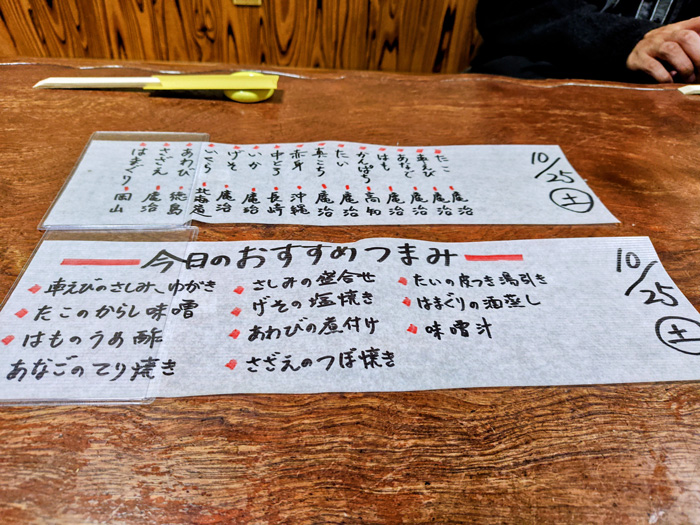 10/25
土
たこ 庵治
車えび 庵治
あなご 庵治
はも 庵治
かんぱち 高知
たい 庵治
真こち 庵治
赤身 沖縄
中とろ 長崎
いか 庵治
げそ 庵治
いくら 北海道
あわび 徳島
さざえ 庵治
はまぐり 岡山
10/25
土
今日のおすすめつまみ
車えびのさしみ、ゆがき
たこのからし味噌
はものうめ酢
あなごのてり焼き
さしみの盛合せ
げその塩焼き
あわびの煮付け
さざえのつぼ焼き
たいの皮つき湯引き
はまぐりの酒蒸し
味噌汁